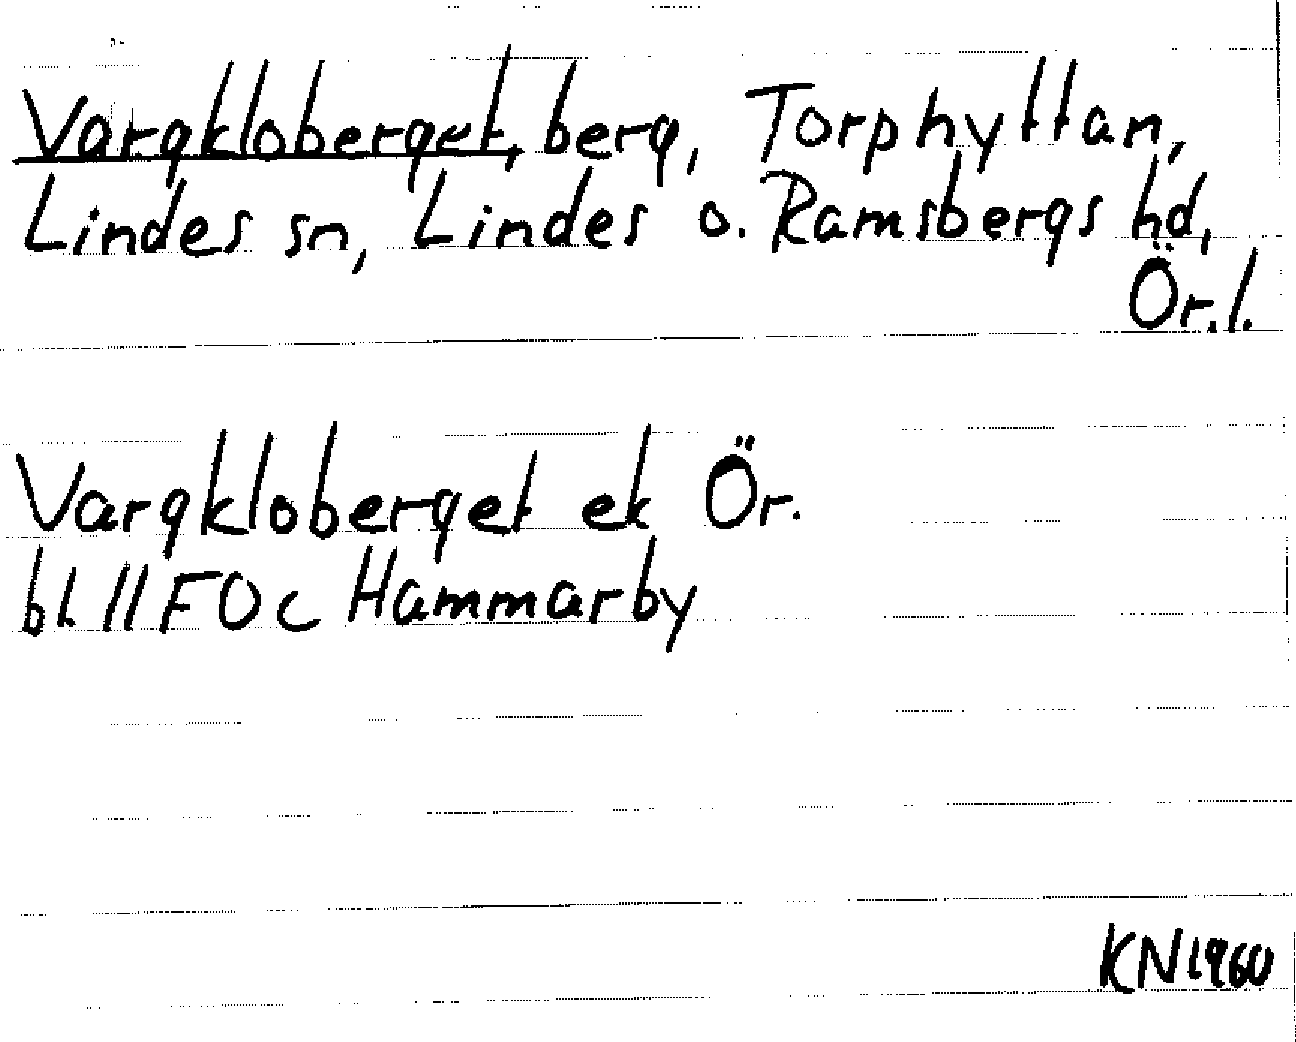 Vargkloberget, berg, Torphyttan,
Lindes sn, Lindes o. Ramsbergs hd,
Ör.l.
Vargkloberget ek Ör.
bl 11F0c Hammarby
KN 1960